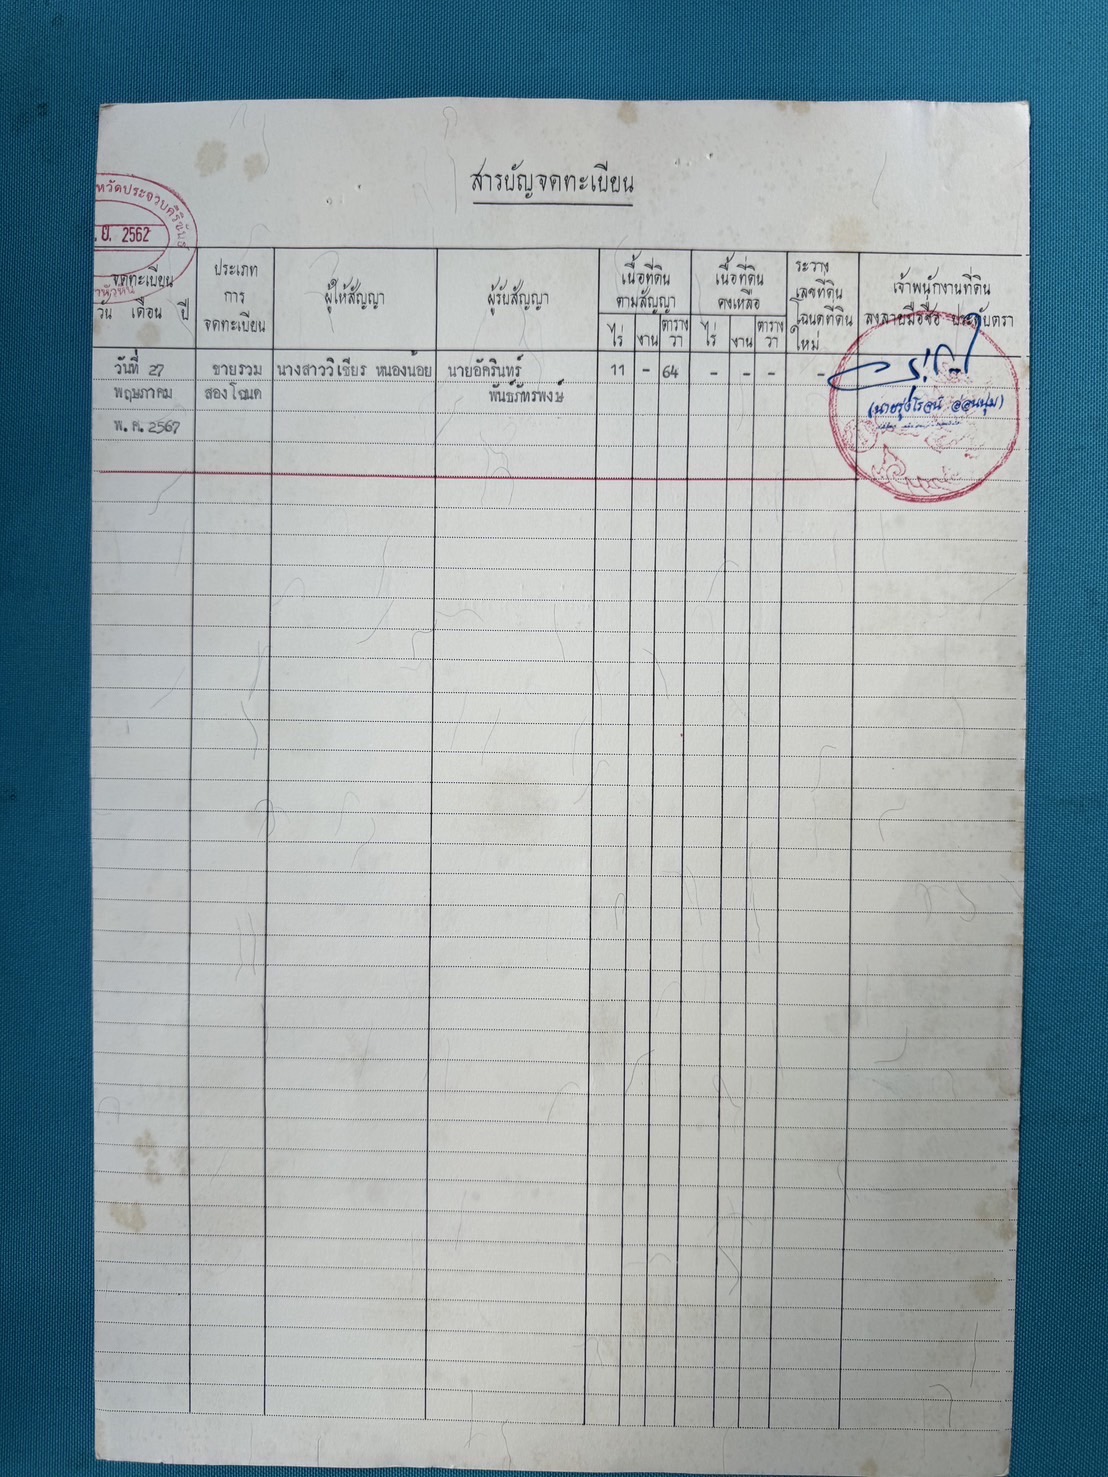 สารบัญจดทะเบียน
หวัดประจวบคีรีขันธ์
.ย. 2562
จดทะเบียน
วัน เดือน ปี
ประเภท
การ
จดทะเบียน
ผู้ให้สัญญา
ผู้รับสัญญา
เนื้อที่ดิน
ตามสัญญา
ไร่ งาน ตาราง
วา
เนื้อที่ดิน
คงเหลือ
ไร่ งาน ตาราง
วา
ระวาง
เลขที่ดิน
โฉนดที่ดิน
ใหม่
เจ้าพนักงานที่ดิน
ลงลายมือชื่อ ประทับตรา
วันที่ 27
พฤษภาคม
พ.ศ. 2567
ขายรวม
สองโฉนด
นางสาววิเชียร หนองน้อย
นายอัครินทร์
พันธ์ภัทรพงษ์
11 - 64 - - - -
(นายรุ่งโรจน์ อ่อนนุ่ม)